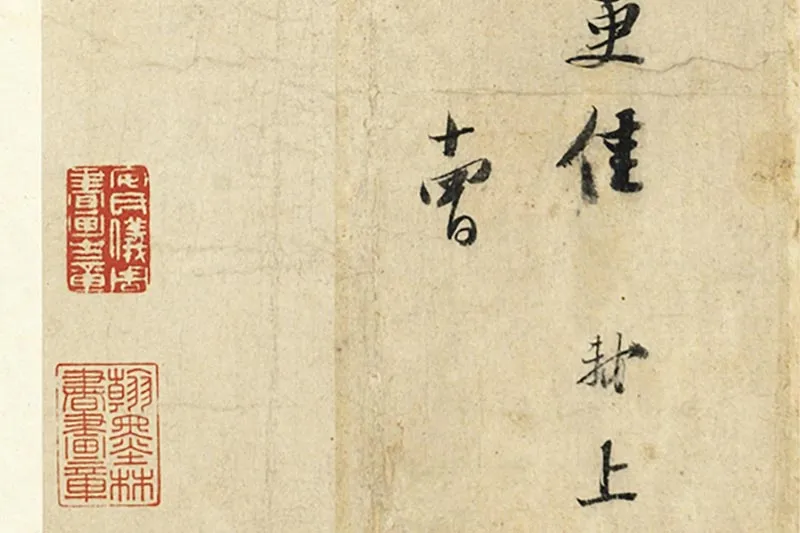 更佳 芾上
安氏儀周書畫之章
翰墨林書畫章